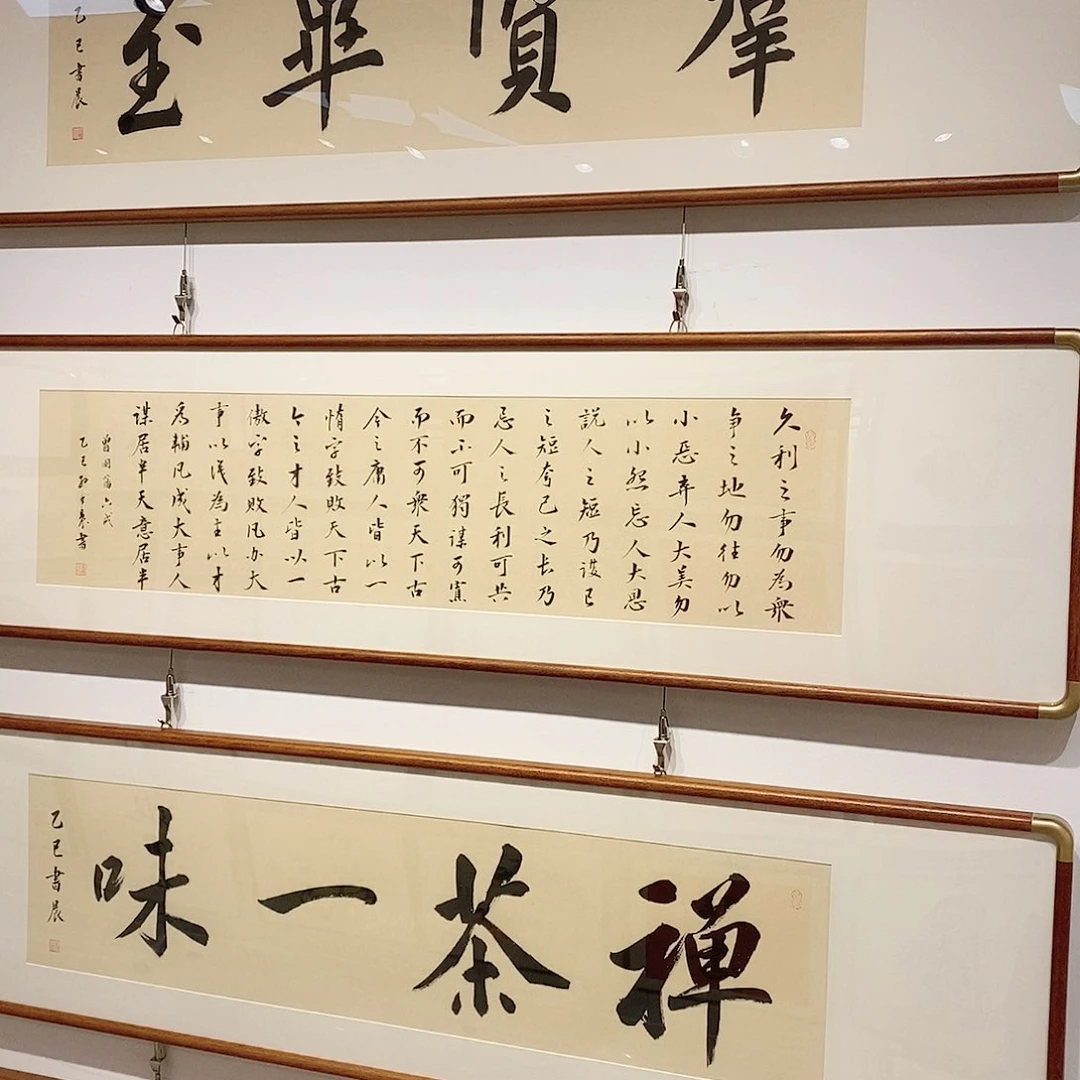 群賢畢至
乙巳書晨
久利之事勿為衆
争之地勿往勿以
小惡弃人大美勿
以小怨忘人大恩
説人之短乃護己
之短夸己之长乃
忌人之長利可共
而不可獨謀可寡
而不可衆天下古
今之庸人皆以一
惰字致敗天下古
今之才人皆以一
傲字致敗凡办大
事以识為主以才
為輔凡成大事人
謀居半天意居半
曾国藩六戒
乙巳書
禅茶一味
乙巳書晨